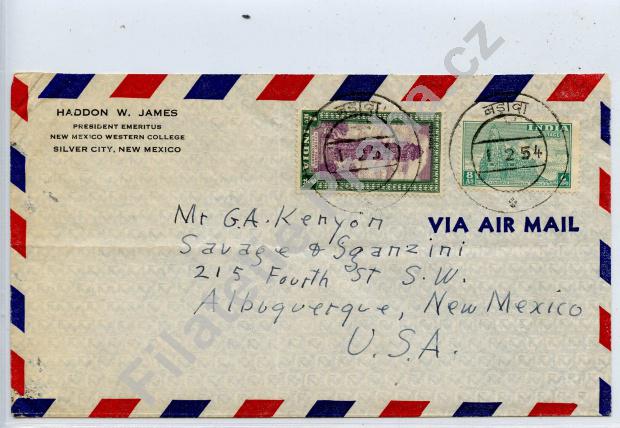 HADDON W. JAMES
PRESIDENT EMERITUS
NEW MEXICO WESTERN COLLEGE
SILVER CITY, NEW MEXICO
बड़ौदा
1 2 5
बड़ौदा
INDIA
1 2 54
8
VIA AIR MAIL
Mr G.A. Kenyon
Savage & Sganzini
215 Fourth St S.W.
Albuquerque, New Mexico
U.S.A.